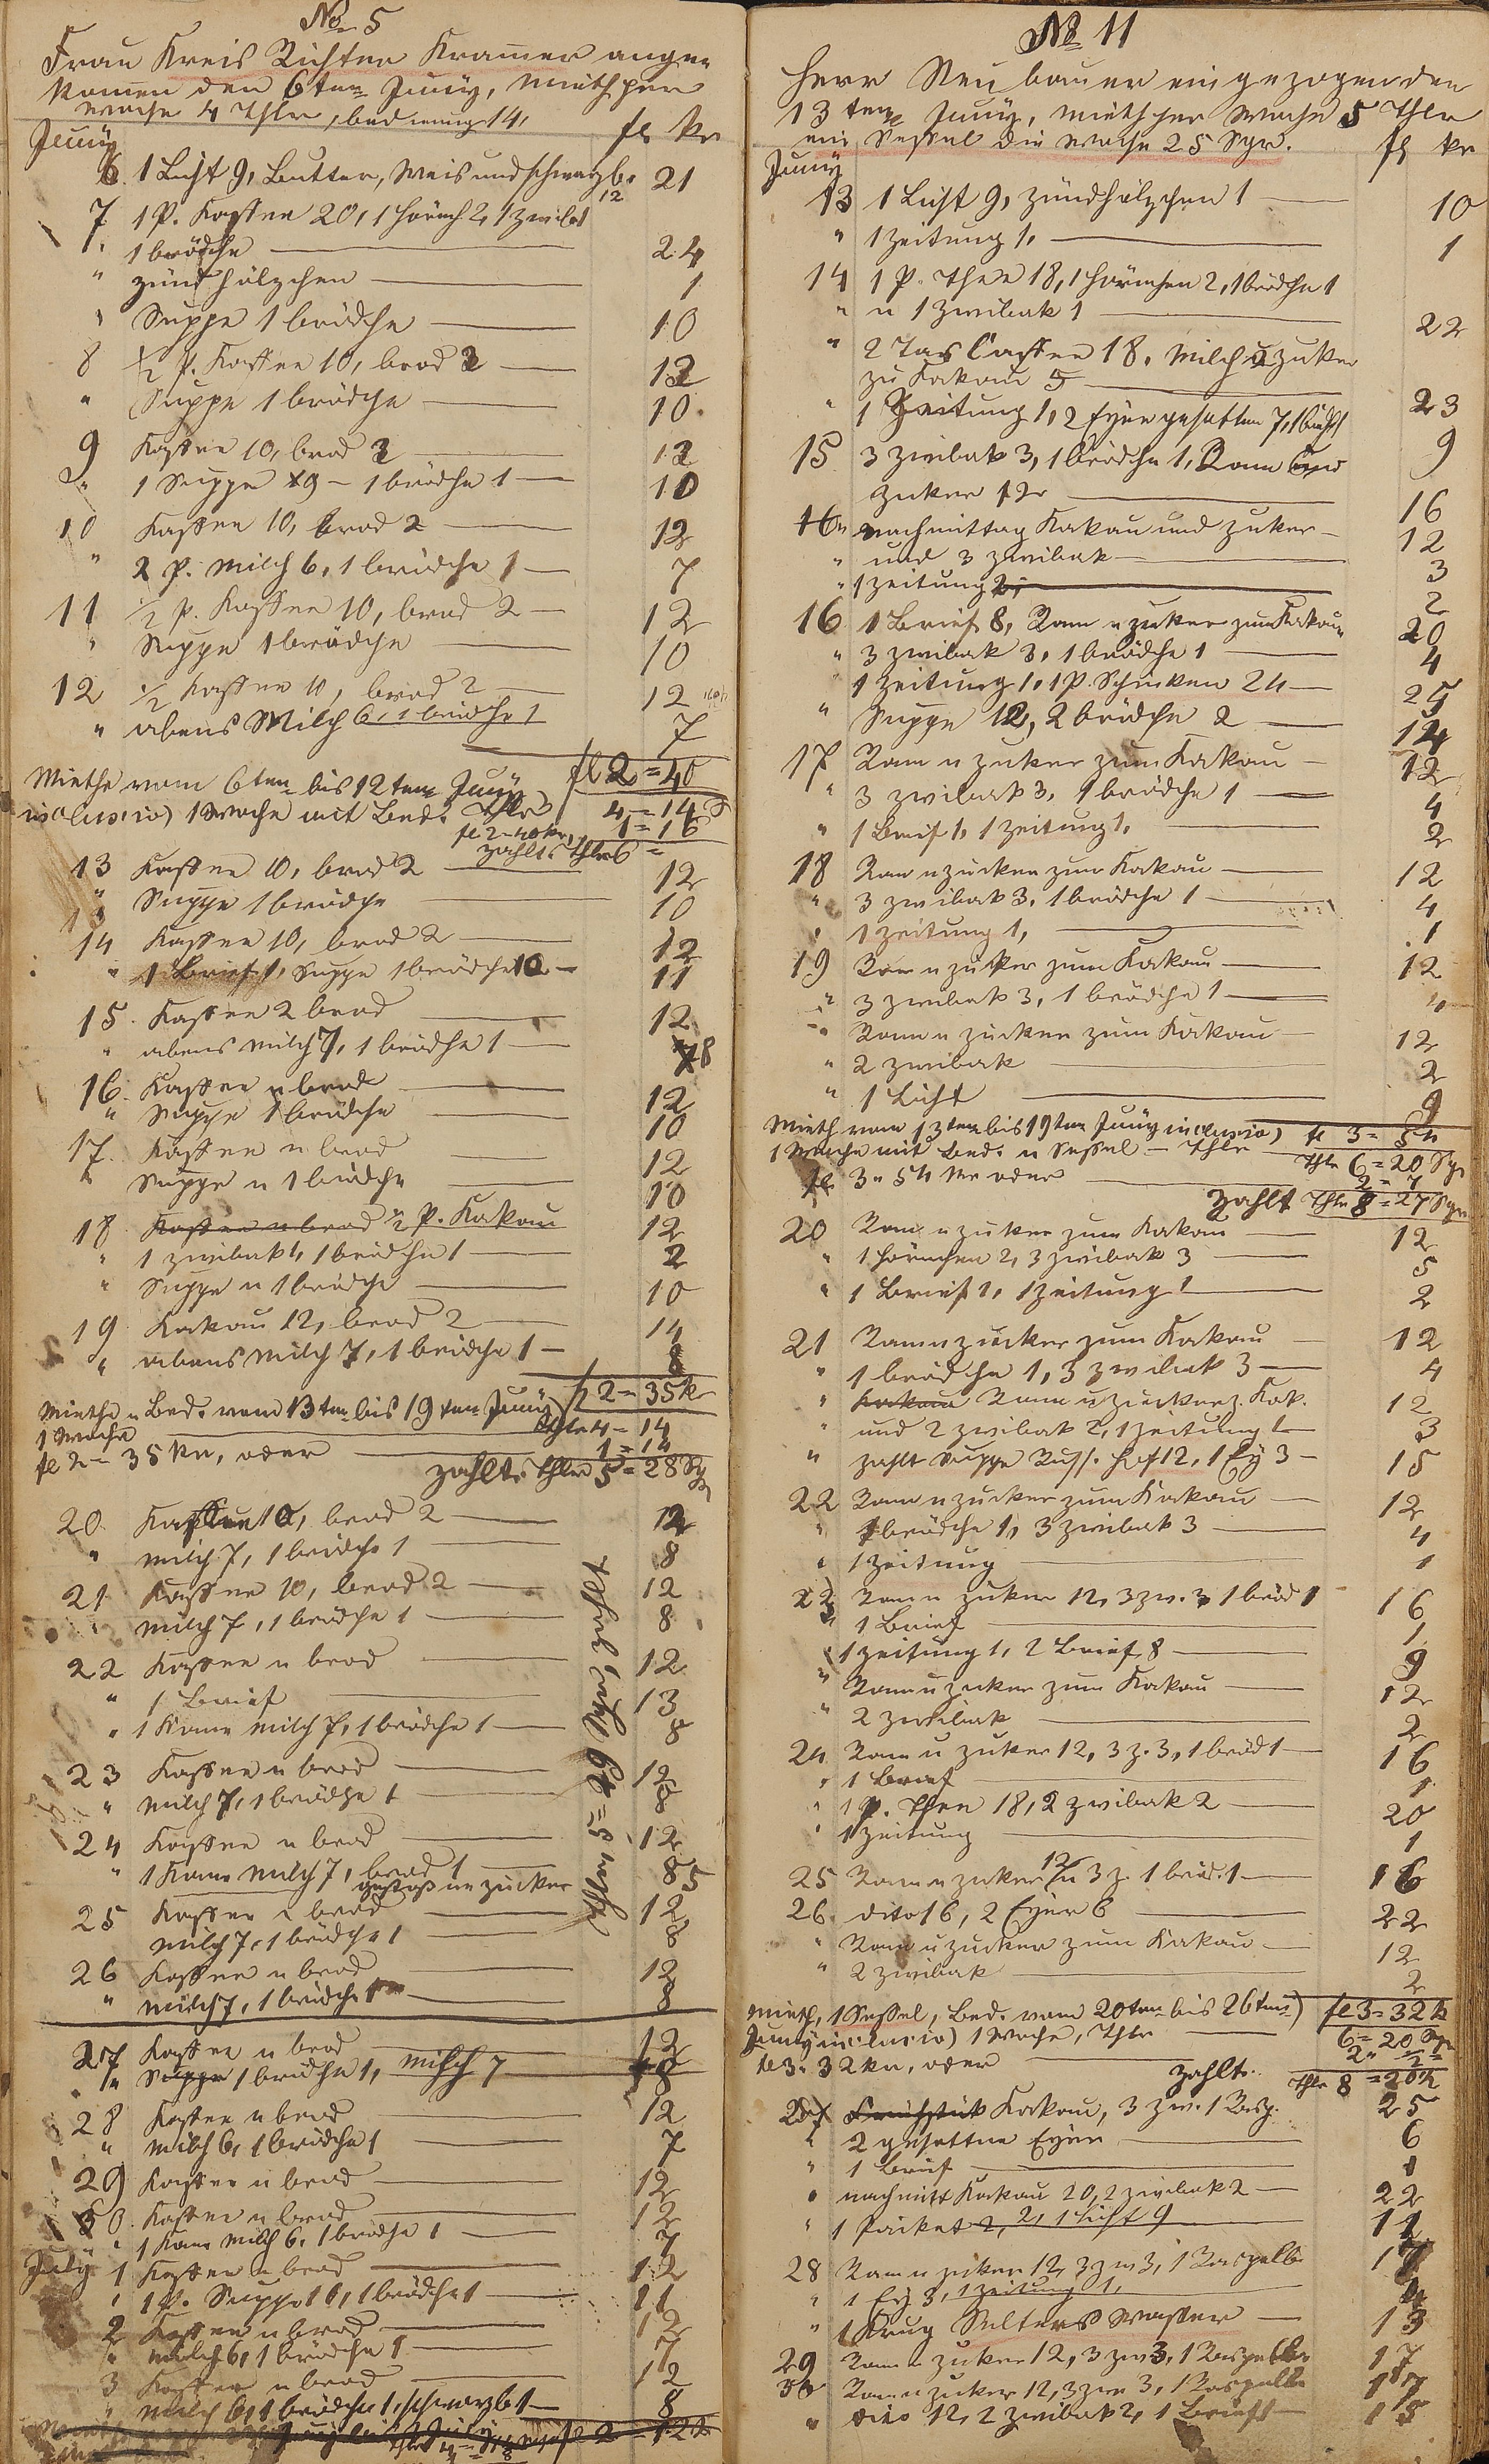 No 5
Frau Kreis Richter Kramer ange
komen den 6ten Juny, Mieth per
Woche 4 Thlr, bedinung 14,
Juny fl kr
6 1 Licht 9, Butter, Weis und schwarzb. 12 21
7 1 P. Kaffee 20, 1 Hörnch 2, 1 zwibak
" 1 brödche 24
" zündhölzchen 1
" Suppe 1 brödche 10
8 1/2 p. Kaffee 10, brod 2 12
" Suppe 1 brödche 10
9 Kaffee 10, brod 2 12
" 1 Suppe 9 – 1 brödche 1 10
10 Kaffee 10, brod 2 12
" 2 p. Milch 6, 1 brödche 1 7
11 1/2 p. Kaffee 10, brod 2 12
" Suppe 1 brödche 10
12 1/2 Kaffee 10, brod 2 12
" abens Milch 6, 1 brödche 1 7
fl 2 = 40
Miethe vom 6ten bis 12ten Juny
inclusio) 1 Woche mit Bed. Thlr 4 = 14 S
fl 2 = 40 kr, 1 = 16
zahlt. Thlr 6 =
13 Kaffee 10, brod 2 12
" Suppe 1 brödche 10
14 Kaffee 10, brod 2 12
" 1 Brief 1, Suppe 1 brödche 10 11
15 Kaffee 2 brod 12
" abens Milch 7, 1 brödche 1 8
16 Kaffee u brod 12
" Suppe 1 brödche 10
17 Kaffee u brod 12
" Suppe u 1 brödche 10
18 Kaffee u brod 1/2 P. Kakau 12
" 1 zwibak 1, 1 brödche 1 2
" Suppe u 1 brödche 10
19 Kakau 12, brod 2 14
" abens Milch 7, 1 brödche 1 8
fl 2 = 35 k
Miethe u Bed. vom 13ten bis 19ten Juny
1 Woche Thlr 4 = 14
fl 2 = 35 kr, oder 1 = 14
zahlt. Thlr 5 = 28 Sg
20 Kaffee 10, brod 2 12
" Milch 7, 1 brödche 1 8
21 Kaffee 10, brod 2 12
" Milch 7, 1 brödche 1 8
22 Kaffee u brod 12
" 1 Brief 13
" 1 Kane Milch 7, 1 brödche 1 8
23 Kaffee u brod 12
" Milch 7, 1 brödche 1 8
24 Kaffee u brod 12
" 1 Kane Milch 7, brod 1 8
zucker 5
25 Kaffee u brod 12
Milch 7, 1 brödche 1 8
26 Kaffee u brod 12
" Milch 7, 1 brödche 1 8
Thlr 5 = 29 Sgr, zahlt
27 Kaffee u brod 12
" Suppe 1 brödche 1, Milch 7 8
28 Kaffee u brod 12
" Milch 6, 1 brödche 1 7
29 Kaffee u brod 12
30 Kaffee u brod 12
" 1 Kane Milch 6, 1 brödche 1 7
July 1 Kaffee u brod 12
" 1 P. Suppe 10, 1 brödche 1 11
2 Kaffee u brod 12
" Milch 6, 1 brödche 1 7
3 Kaffee u brod 12
" Milch 6, 1 brödche 1, schwarzb 1 8
No 11
Herr Neubauer eingezogen den
13ten Juny, Mieth per Woche 5 Thlr
ein Sessel die Woche 25 Sgr.
Juny fl kr
13 1 Licht 9, Zündhölzchen 1 10
" 1 Zeitung 1, 1
14 1 P. Thee 18, 1 Hörnchen 2, 1 brödche 1
" u 1 Zwibak 1 22
" 2 Tas Caffee 18, Milch u Zuker
zu Kakau 5 23
" 1 Zeitung 1, 2 Eyer gesotten 7, 1 brödch 1 9
15 3 zwibak 3, 1 brödche 1, Ram und
Zuker 12 16
16 nachmittag Kakau und Zuker 12
" und 3 zwibak 3
" 1 zeitung 2, 2
16 1 Brief 8, Ram u zuker zum Kakau 20
" 3 zwibak 3, 1 brödche 1 4
" 1 Zeitung 1, 1 P. Schinken 24 25
" Suppe 12, 2 brödche 2 14
17 Ram u zuker zum Kakau 12
" 3 zwibak 3, 1 brödche 1 4
" 1 Brief 1, 1 Zeitung 1, 2
18 Ram u zucker zum Kakau 12
" 3 zwibak 3, 1 brödche 1 4
" 1 Zeitung 1, 1
19 Ram u zucker zum Kakau 12
" 3 zwibak 3, 1 brödche 1 4
" Ram u zucker zum Kakau 12
" 2 zwibak 2
" 1 Licht 9
Mieth vom 13ten bis 19ten Juny inclusio) fl 3 = 54
1 Woche mit Bed. u Sessel – Thlr Thlr 6 = 20 Sgr
fl 3 = 54 kr oder 2 = 7
zahlt Thlr 8 = 27 Sgr
20 Ram u zuker zum Kakau 12
" 1 Hörnchen 2, 3 zwibak 3 5
" 1 Brief 1, 1 Zeitung 1 2
21 Ram u zucker zum Kakau 12
" 1 brödche 1, 3 zwibak 3 4
" Kakau Ram u zucker z. Kak. 12
" und 2 zwibak 2, 1 Zeitung 1 3
" zahlt Suppe Russ. Hof 12, 1 Ey 3 15
22 Ram u zucker zum Kakau 12
" 1 brödche 1, 3 zwibak 3 4
" 1 Zeitung 1
23 Ram u zuker 12, 3 zw. 3, 1 bröd 1 16
" 1 Brief 1
" 1 Zeitung 1, 2 Brief 8 9
" Ram u zuker zum Kakau 12
" 2 zwibak 2
24 Ram u zuker 12, 3 z. 3, 1 bröd 1 16
" 1 Brief 1
" 1 P. Thee 18, 2 zwibak 2 20
" 1 Zeitung 1
25 Ram u zuker 12 u 3 z. 1 bröd. 1 16
26 dito 16, 2 Eyer 6 22
" Ram u zucker zum Kakau 12
" 2 zwibak 2
Mieth, 1 Sessel, Bed. vom 20ten bis 26ten) fl 3 = 32 k
Juny inclusio) 1 Woche, Thlr 6 = 20 Sgr
fl 3 = 32 kr, oder
zahlt. Thlr 8 = 20 1/2
27 Frühstük Kakau, 3 zw. 1 Rasp. 25
" 2 gesottne Eyer 6
" 1 Brief 1
" nachmitt Kakau 20, 2 zwibak 2 22
" 1 Paket 2, 1 Licht 9 11
28 Ram u zuker 12, 3 zw 3, 1 Raspelbr 17
" 1 Ey 3, 1 Zeitung 1, 4
" 1 Krug Selters Wasser 13
29 Ram u zuker 12, 3 zw 3, 1 Raspelbr 17
30 Ram u zuker 12, 3 zw 3, 1 Raspelbr 17
" dito 12, 2 zwibak 2, 1 Brief 1 15